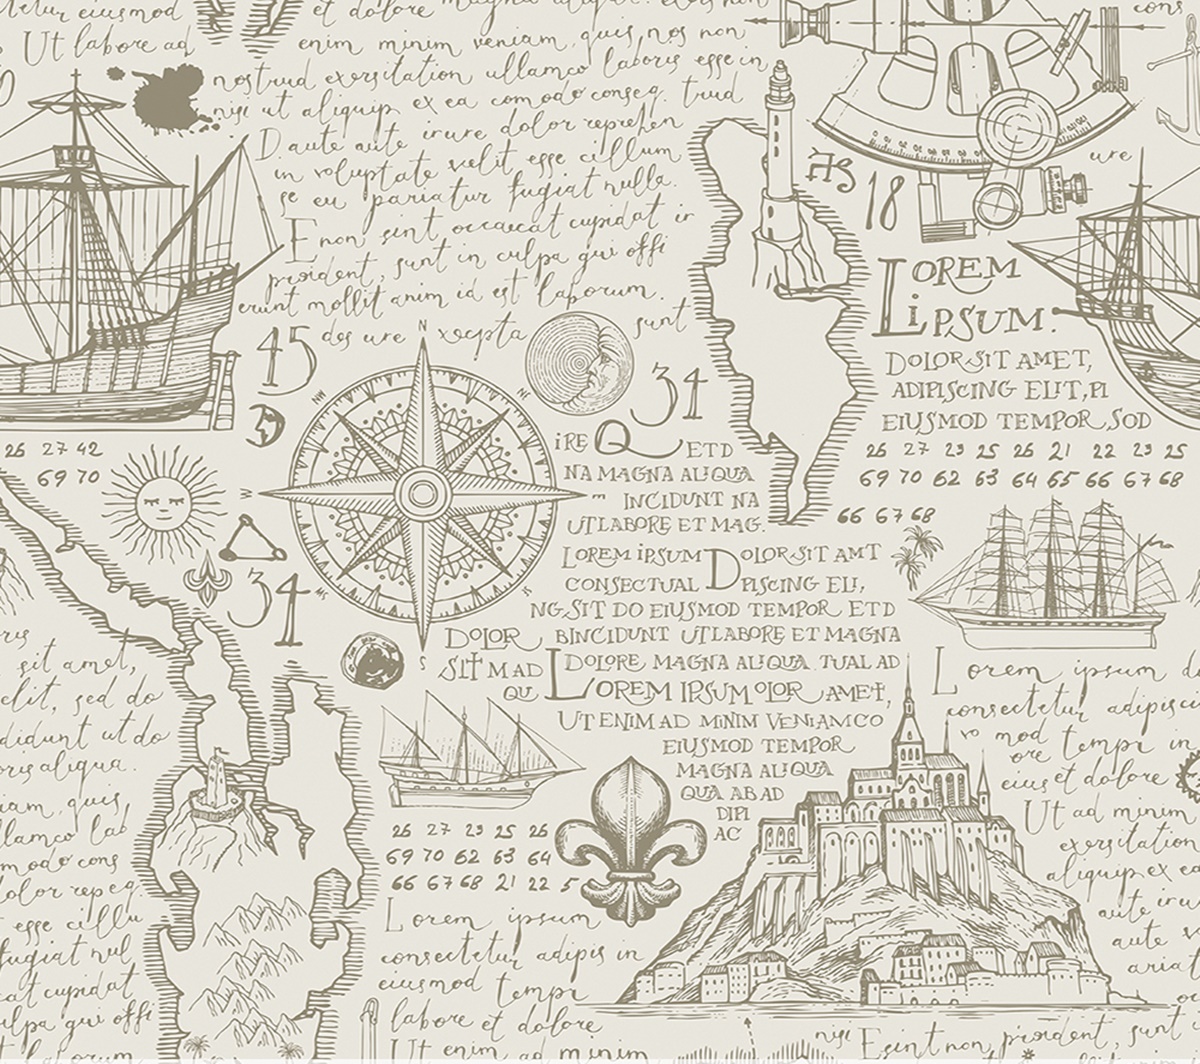 et dolore magna aliqua.
Ut labore ad
enim minim veniam, quis, nos non
nostrud exersitation ullamco laboris esse in
nisi ut aliquip ex ea comodo conseq. trud
Daute aute irure dolor reprehen
in voluptate velit esse cillum
se eu pariatur fugiat nulla.
Enon sint occaecat cupidat ir
proident, sunt in culpa qui offi
erunt mollit anim id est laborum.
des ure xcepta sunt
cons
ure
18
LOREM
LiPSUM.
DOLOR SIT AMET,
ADIPISCING ELIT, PI
EIUSMOD TEMPOR SOD
26 27 23 25 26 21 22 23 25
69 70 62 63 64 65 66 67 68
66 67 68
45
N
NE
NW
W
E
S
34
26 27 42
69 70
34
iRE Q ETD
NA MAGNA ALIQUA
INCIDUNT NA
UTLABORE ET MAG.
LOREM iPSUM DOLOR SIT AMT
CONSECTUAL DPISCING ELI,
NG SIT DO EIUSMOD TEMPOR ETD
DOLOR BINCIDUNT UTLABORE ET MAGNA
SIT MAD LDOLORE MAGNA ALIQUA TUAL AD
QU LOREM IPSUM OLOR AMET,
UTENIM AD MINIM VENIAMCO
EIUSMOD TEMPOR
MAGNA ALIQUA
QUA AB AD
DIPI
AC
sit amet,
elit, sed do
didunt ut do
oris aliqua.
iam, quis,
llamco lab
modo cons
dolor repeq
t esse cillu
fugiat nul
cat cupidat
ulpa qui offi
t laborum
26 27 23 25 26
69 70 62 63 64
66 67 68 21 22 5
Lorem ipsum
consectetur adipis in
eiusmod tempr
labore et dolore
Ut enim ad minim
Lorem ipsum d
consectetur adipiscu
ro mod tempr in
ore
eius et dolore
Ut ad minim
exersitation
aliquip ex ea
aute iru
aute v
ariat
nisi Esint non, proident, sunt